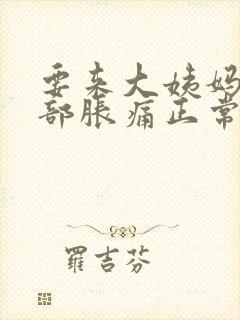 要来大姨妈
部胀痛正常
羅吉芬